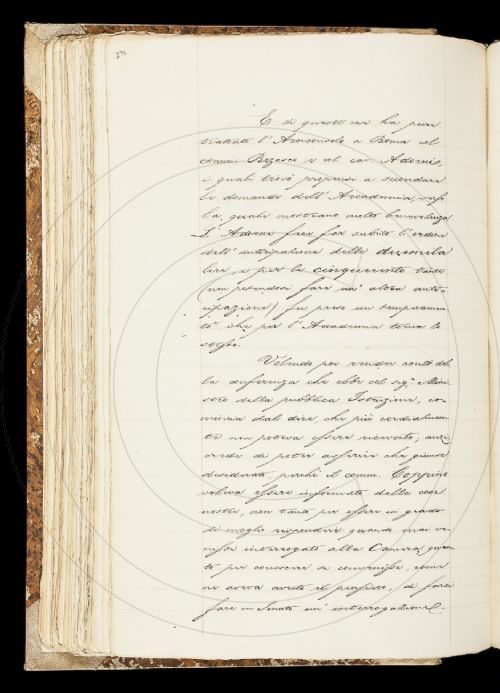 274
E di questo con ha pure
trattato l'Arciconsolo a Roma col
comm. Rezasco e col cav. Adorni,
i quali trovò propensi a secondare
le domande dell'Accademia, verso
la quale mostrano molta benevolenza
L'Adorni fece far subito l'ordine
dell'anticipazione delle duemila
lire, e per le cinquecento
(non potendosi fare un'altra anti-
cipazione) fu preso un temperamen-
to che per l'Accademia torna lo
stesso.
Volendo poi render conto del-
la conferenza che ebbe col sig. Mini-
stro della pubblica Istruzione, co-
mincia dal dire, che più cordialmen-
te non poteva essere ricevuto; anzi,
crede di poter asserire che giunse
desiderato, perché il comm. Coppino
voleva essere informato delle cose
nostre, non tanto per essere in grado
di meglio rispondere quando mai ve-
nisse interrogato alla Camera, quan-
to per conoscere se convenisse, come
ne aveva avuto il pensiero, di farsi
fare in Senato un'interrogazione